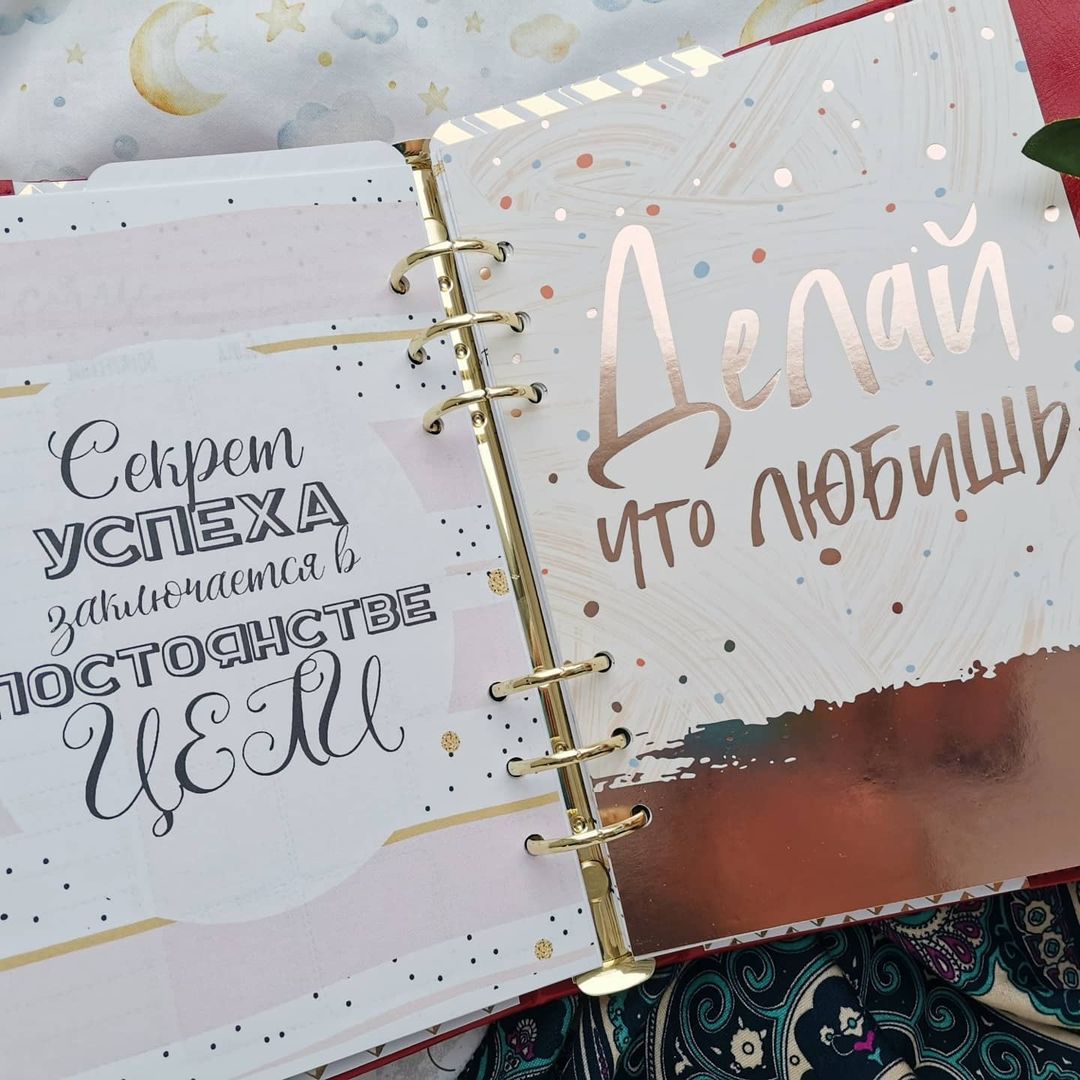 Секрет
УСПЕХА
заключается в
ПОСТОЯНСТВЕ
ЦЕЛИ
Делай
что ЛЮБИШЬ